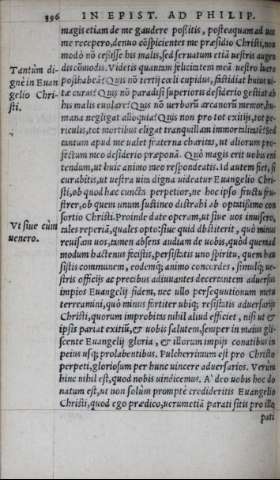 396 IN EPIST. AD PHILIP.
magis etiam de me gaudere possitis, posteaquam ad uos
me recepero, denuo cõspicientes me præsidio Christi, non
modò nõ cessisse his malis, sed seruatum etiã uestris augen
dis cõmodis. Videtis quantum felicitatem meã uestro lucro
posthabeã? Quis nõ tertij cœli cupidus, fastidiat huius ui-
tæ curas? Quis nõ paradisi superioris desiderio gestiat ab
his malis euolare? Quis nõ uerborũ arcanorũ memor, hu-
mana negligat alloquia? Quis non pro tot exilijs, tot pe-
riculis, tot mortibus eligat tranquillam immortalitatẽ? Sed
tantum apud me ualet fraterna charitas, ut aliorum pro-
fectum meo desiderio præponã. Quò magis erit uobis eni
tendum, ut huic animo meo respondeatis. Id autem fiet, si
curabitis, ut uestra uita digna uideatur Euangelio Chri-
sti, ob quod hæc cuncta perpetior, ne hoc ipso fructu fru-
strer, ob quem unum sustineo distrahi ab optatissimo con
sortio Christi. Proinde date operam, ut siue uos inuisero,
tales reperiã, quales opto: siue quid obstiterit, quò minus
reuisam uos, tamen absens audiam de uobis, quòd quemad
modum hactenus fecistis, persistatis uno spiritu, quem hau
sistis communem, eodemq́; animo concordes, simulq́; ue-
stris officijs ac precibus adiuuantes decertantem aduersus
impios Euangelij fidem, nec ullo persequutionum metu
terreamini, quò minus fortiter ubiq; resistatis aduersarijs
Christi, quorum improbitas nihil aliud efficiet, nisi ut &
ipsis pariat exitiũ, & uobis salutem, semper in maius gli-
scente Euangelij gloria, & illorum impijs conatibus in
peius usq; prolabentibus. Pulcherrimum est pro Christo
perpeti, gloriosum per hunc uincere aduersarios. Verùm
hinc nihil est, quod nobis uindicemus. A' deo uobis hoc do
natum est, ut non solùm promptè credideritis Euangelio
Christi, quod ego prædico, uerumetiã parati sitis pro illo
pati
Tantùm di-
gnè in Euan
gelio Chri-
sti.
Vt siue cùm
uenero.